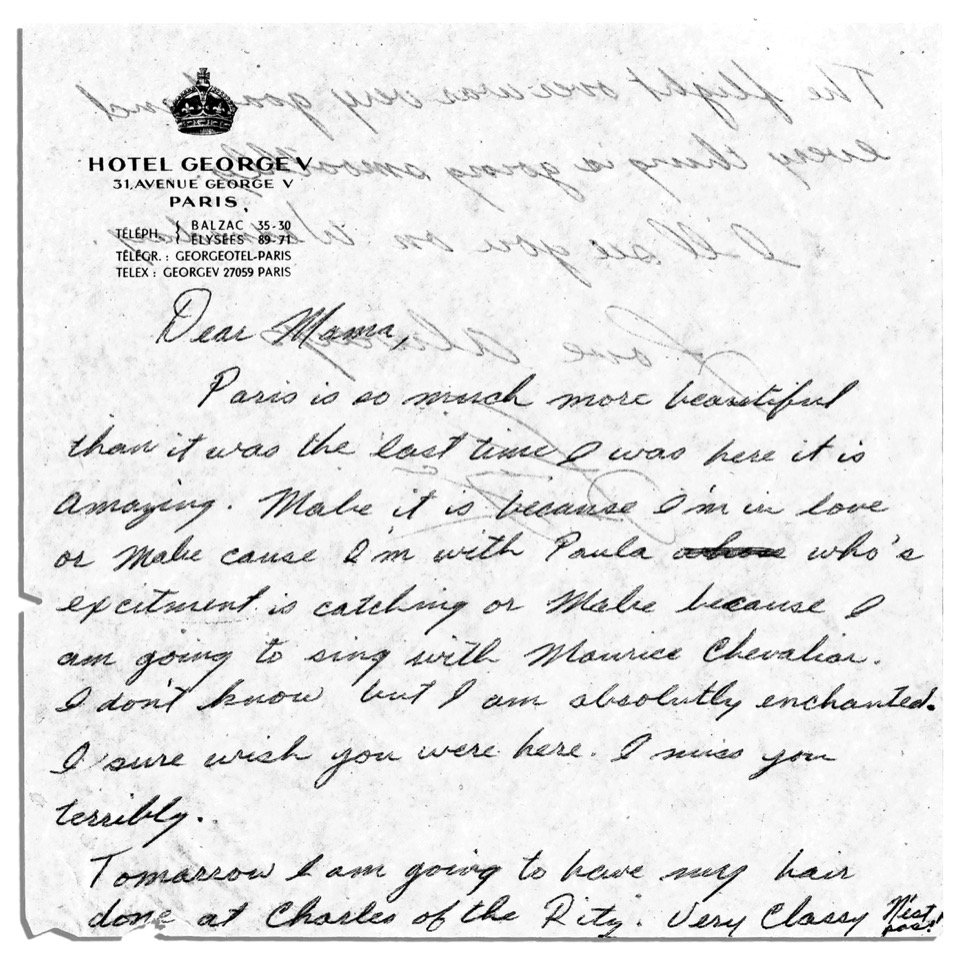 HOTEL GEORGE V
31, AVENUE GEORGE V
PARIS,
TÉLÉPH. { BALZAC 35-30
ÉLYSÉES 89-71
TÉLÉGR. : GEORGEOTEL-PARIS
TELEX : GEORGEV 27059 PARIS
Dear Mama,
Paris is so much more beautiful
than it was the last time I was here it is
amazing. Mabe it is because I'm in love
or Mabe cause I'm with Paula who's
excitment is catching or Mabe because I
am going to sing with Maurice Chevaliar.
I don't know but I am absolutly enchanted.
I sure wish you were here. I miss you
terribly.
Tomarrow I am going to have my hair
done at Charles of the Ritz. Very Classy N'est
pas!
The flight over was very good and
every thing is going smoothly.
I'll see you on
Love Always